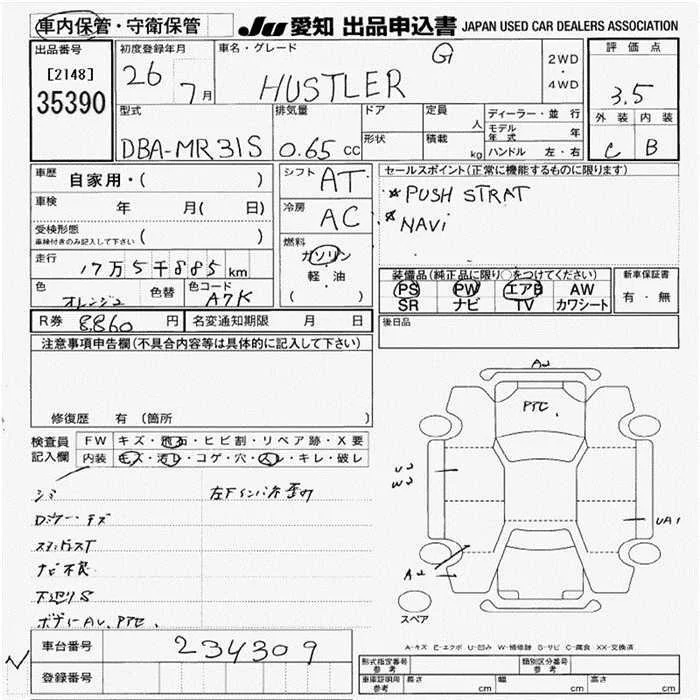 車内保管・守衛保管 JU 愛知 出品申込書 JAPAN USED CAR DEALERS ASSOCIATION
出品番号 初度登録年月 車名・グレード G 2WD・4WD 評価点
[2148] 26 7月 HUSTLER 3.5
35390 外装 内装
型式 排気量 ドア 定員 人 ディーラー・並行 C B
DBA-MR31S 0.65 CC 形状 積載 kg モデル年式 年
ハンドル 左・右
車歴 自家用・( ) シフト AT セールスポイント(正常に機能するものに限ります)
車検 年 月( 日) 冷房 AC *PUSH STRAT
受検形態 ( ) *NAVi
車検付きのみ記入して下さい
燃料 ガソリン 軽・油 ( )
走行 17万5千885km 装備品(純正品に限り○をつけてください) 新車保証書
色 オレンジ2 色替 色コード A7K PS PW エアB AW 有・無
SR ナビ TV カワシート
R券 8,860 円 名変通知期限 月 日 後日品
注意事項申告欄(不具合内容等は具体的に記入して下さい)
修復歴 有 (箇所 )
検査員 FW キズ・飛石・ヒビ割・リペア跡・X要
記入欄 内装 キズ・汚レ・コゲ・穴・スレ・キレ・破レ
A2
PTE.
U2
W2
UA1
A2
スペア
シミ
ナビ不良
下廻りS
ボディAU, PTE.
A-キズ E-エクボ U-凹み W-補修跡 S-サビ C-腐食 XX-交換済
車台番号 234309
登録番号
形式指定番号 参考 類別区分番号 参考
車庫証明用 参考 長さ cm 幅 cm 高さ cm